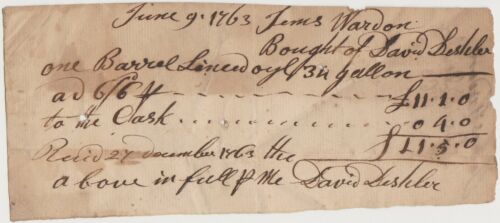 June 9. 1763 Jems Wardon
Bought of David Deshler
one Barrel Lincedoyl /34 gallon
ad 6/6 £11.1.0
to the Cask 0 4.0
£11.5.0
Reiid 27 December 1763 the
above in full ⅌ Me David Deshler